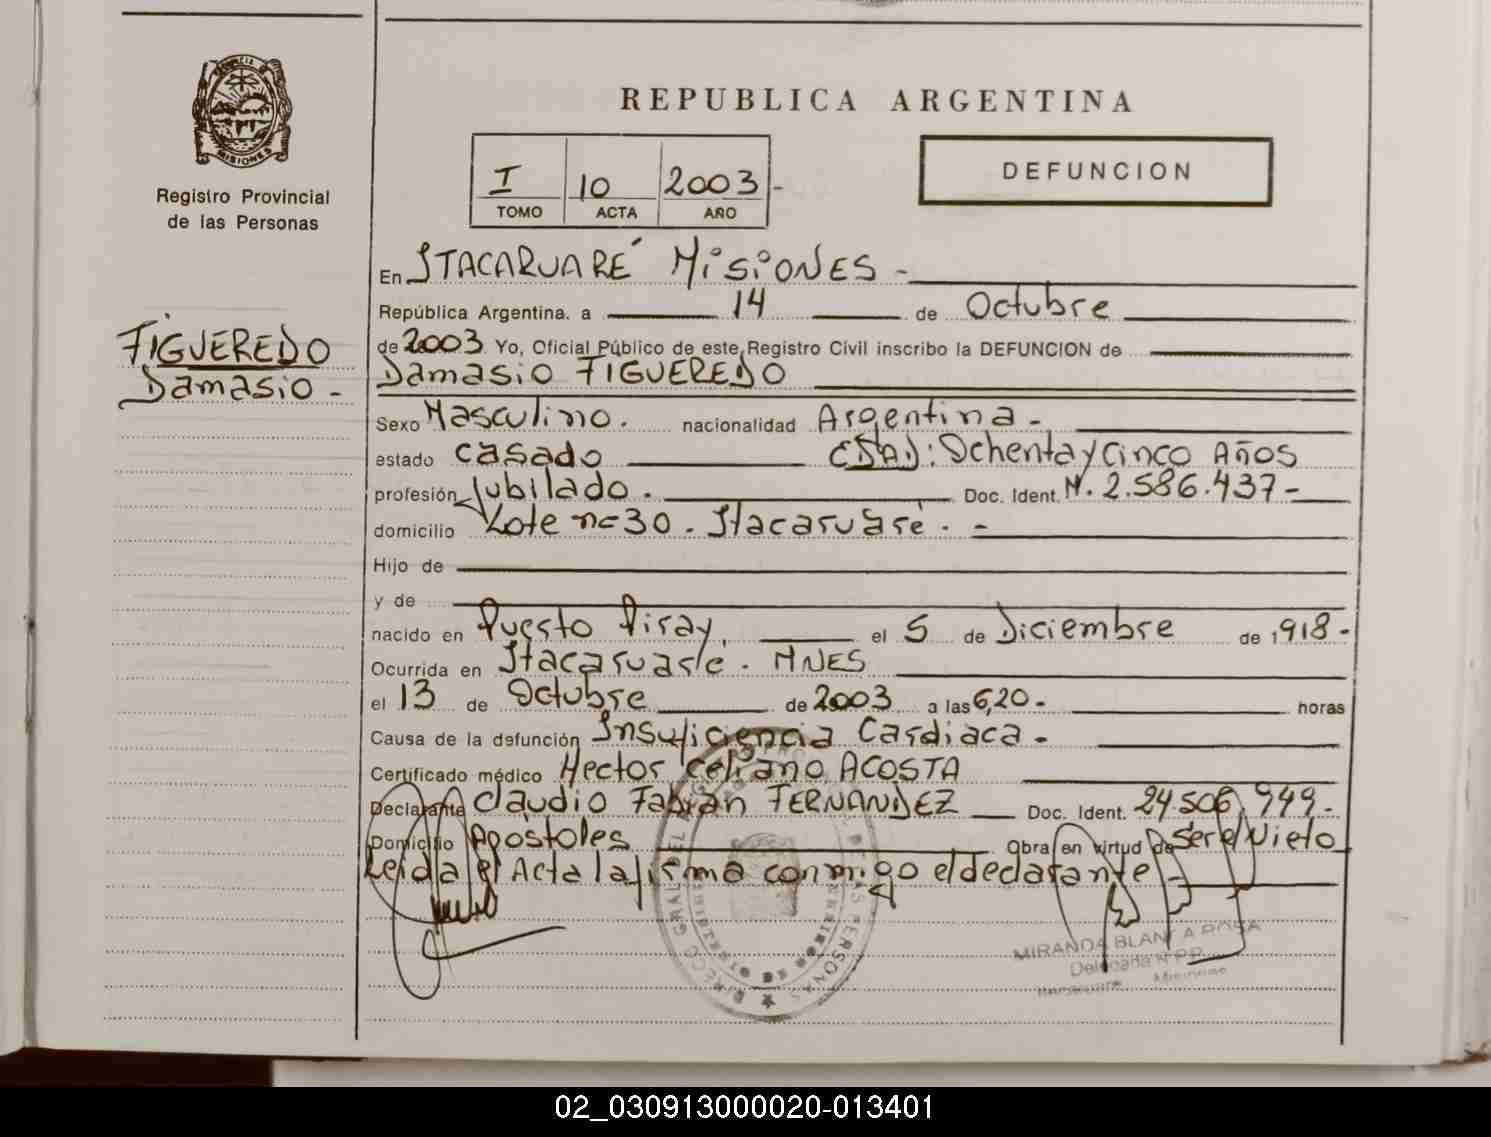 PROVINCIA DE
MISIONES
Registro Provincial
de las Personas
FIGUEREDO
Damasio -
REPUBLICA ARGENTINA
I 10 2003 -
TOMO ACTA AÑO
DEFUNCION
En ITACARUARÉ MiSiONES -
República Argentina. a 14 de Octubre
de 2003 Yo, Oficial Público de este Registro Civil inscribo la DEFUNCION de
Damasio FIGUEREDO
Sexo Masculino. nacionalidad Argentina -
estado casado EDAD: Ochenta y Cinco Años
profesión Jubilado. Doc. Ident. M. 2.586.437 -
domicilio Lote nº 30 - Itacaruaré. -
Hijo de
y de
nacido en Puerto Piray, el 5 de Diciembre de 1918 -
Ocurrida en Itacaruaré. MNES
el 13 de Octubre de 2003 a las 6,20 - horas
Causa de la defunción Insuficiencia Cardiaca -
Certificado médico Hector Celiano ACOSTA
Declarante Claudio Fabian FERNANDEZ Doc. Ident. 24.506.949 -
Domicilio Apostoles Obra en virtud de ser el Nieto
Leida el Acta la firma conmigo el declarante -
MIRANDA BLANCA ROSA
Delegada R.P.P.
Itacaruare Misiones
02_030913000020-013401